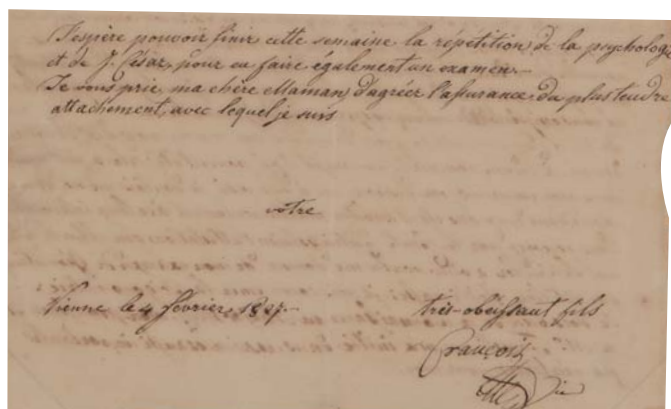 J'espère pouvoir finir cette semaine la répétition de la psychologie
et de J. César, pour en faire également un examen.-
Je vous prie, ma chère Maman, d'agréer l'assurance du plus tendre
attachement, avec lequel je suis
votre
Vienne le 4 février 1827.
très-obéissant fils
François